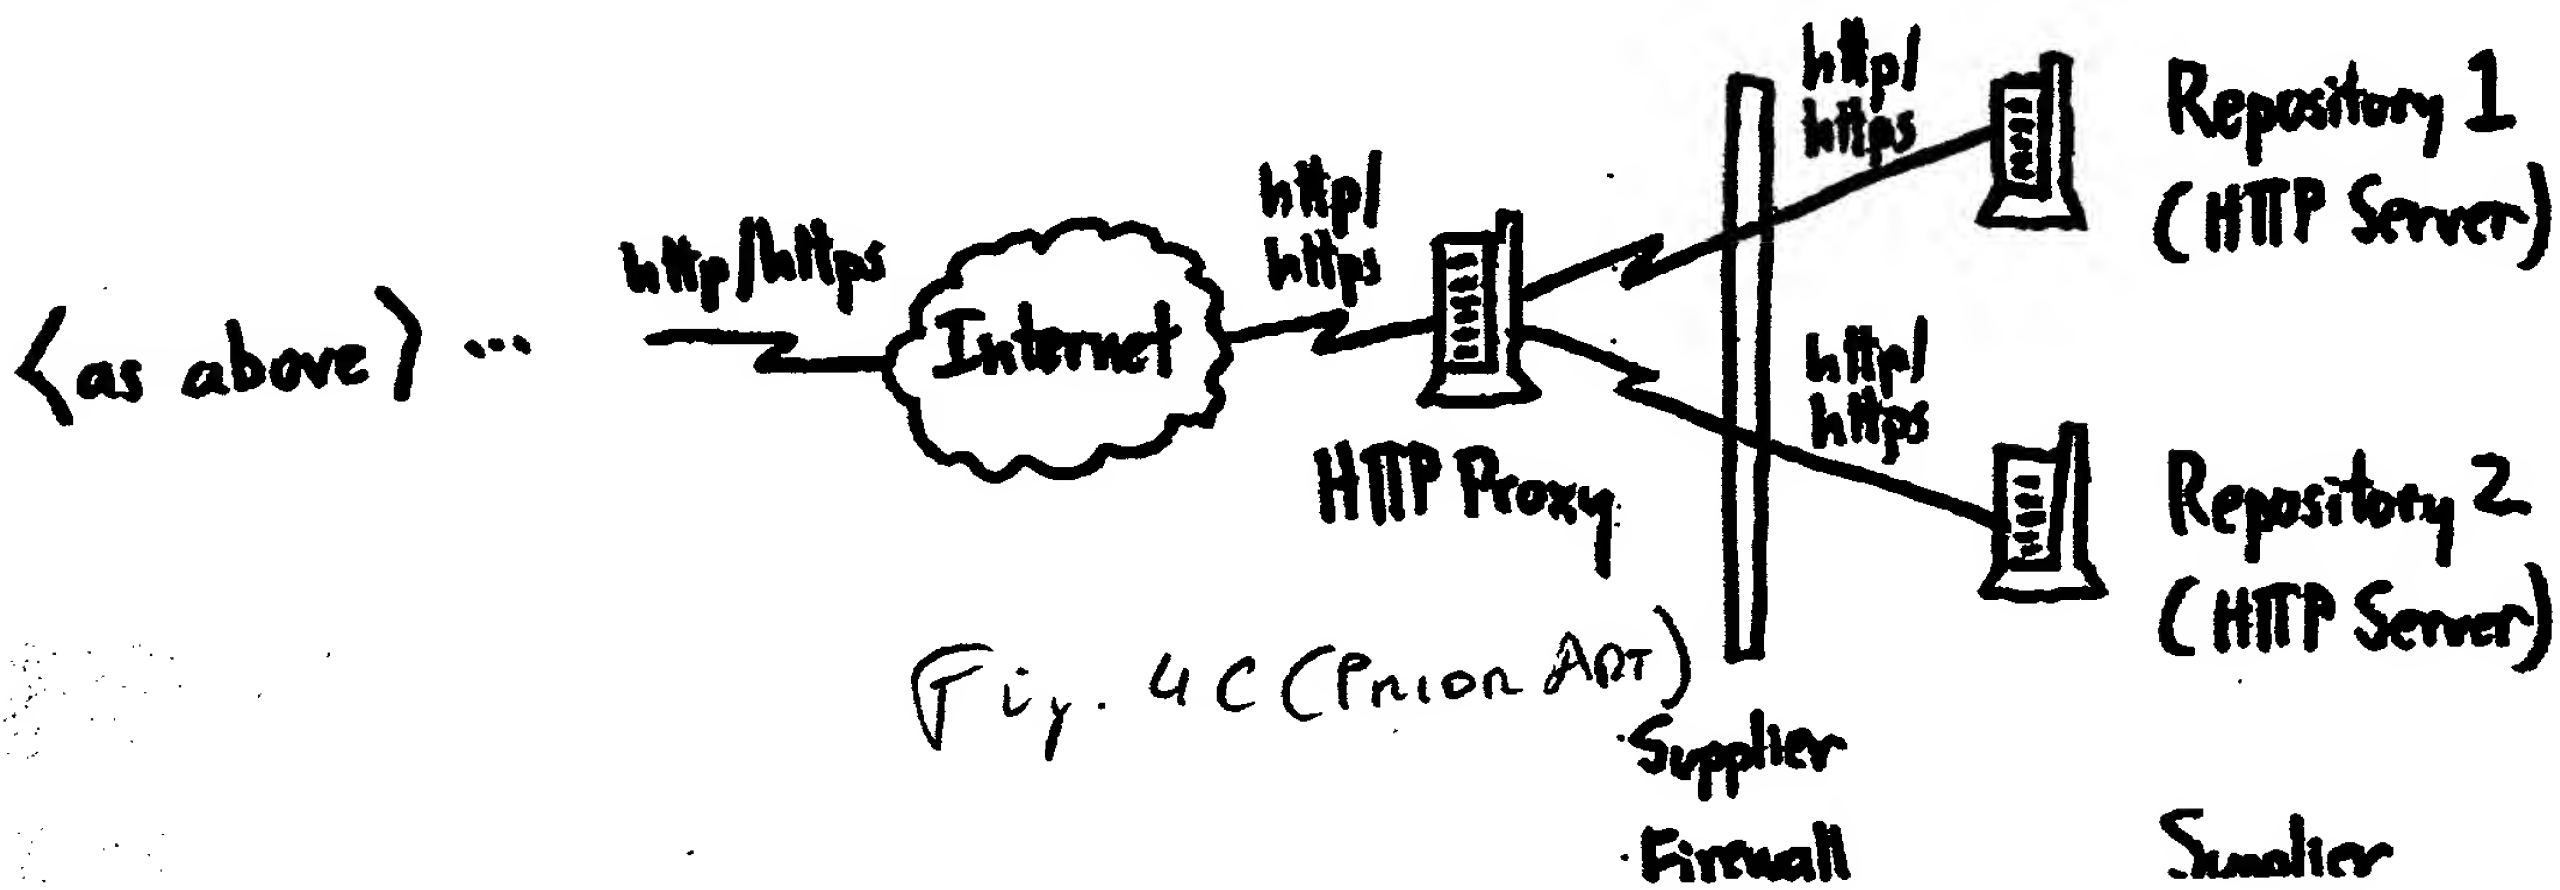 <as above> ...
http/https
Internet
http/
https
HTTP Proxy
http/
https
Repository 1
(HTTP Server)
http/
https
Repository 2
(HTTP Server)
Fig. 4C (Prior Art)
Supplier
Firewall
Supplier